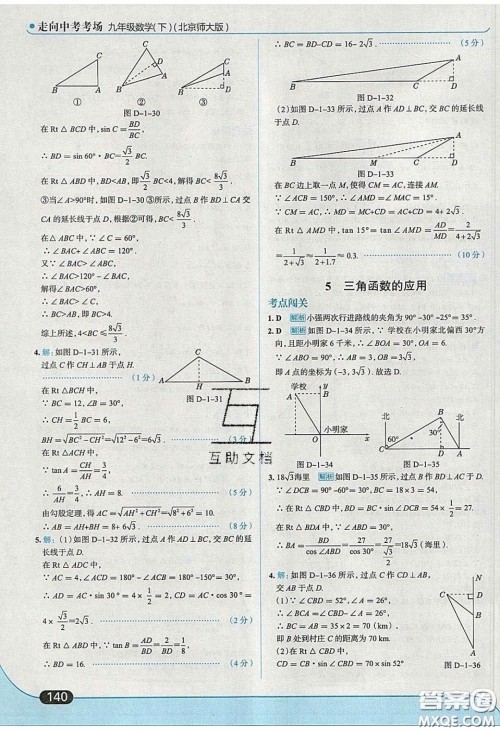 走向中考考场 九年级数学(下)(北京师大版)
A
B
C
①
A
B
C
D
②
A
B
C
D
③
图 D-1-30
在 Rt△BCD 中, sin C = BD/BC,
∴ BD = sin 60°·BC = 8√3/3.
在 Rt△ABD 中, BD<AB, 即 8√3/3 < BC<4, 解得 BC< 8√3/3.
③当∠A>90°时, 如图 D-1-30 ③所示, 过点 B 作 BD⊥CA 交
CA 的延长线于点 D, 根据②可得, BC< 8√3/3.
在△ABC 中, ∵∠C = 60°,
∴∠BAC+∠ABC = 120°.
又∵∠BAC>∠ABC,
∴ 2∠BAC>120°,
∴∠BAC>60°,
∴∠BAC>∠C,
解得 BC>4.
综上所述, 4<BC< 8√3/3.
4. 解: 如图 D-1-31 所示,
过点 C 作 CH⊥AB 于点 H.
(1 分)
在 Rt△BCH 中,
∵ BC = 12, ∠B = 30°,
∴ CH = 1/2 BC = 6,
A
B
C
H
图 D-1-31
BH = √(BC²−CH²) = √(12²−6²) = 6√3. (3 分)
在 Rt△ACH 中,
∵ tan A = CH/AH = 3/4,
∴ 6/AH = 3/4, ∴ AH = 8. (5 分)
由勾股定理, 得 AC = √(AH²+CH²) = √(8²+6²) = 10.
∴ AB = AH+BH = 8+6√3. (8 分)
5. 解: (1)如图 D-1-32 所示, 过点 A 作 AD⊥BC, 交 BC 的延
长线于点 D.
在 Rt△ADC 中,
∵ AC = 4, ∠ACD = 180°−∠ACB = 180°−150° = 30°,
∴ AD = AC·sin 30° = 4× 1/2 = 2, CD = AC·cos 30° =
4× √3/2 = 2√3. (2 分)
在 Rt△ABD 中, ∵ tan B = AD/BD = 2/BD = 1/8,
∴ BD = 16. (4 分)
140
∴ BC = BD−CD = 16−2√3. (5 分)
A
B
C
D
图 D-1-32
(2)如图 D-1-33 所示, 过点 A 作 AD⊥BC, 交 BC 的延长线
于点 D.
A
B
M
C
D
图 D-1-33
在 BC 边上取一点 M, 使得 CM = AC, 连接 AM.
∵∠ACB = 150°, ∴∠AMC = ∠MAC = 15°.
∵ CM = AC, ∴ MD = MC+CD = AC+CD = 4+2√3.
∴ 在 Rt△AMD 中, tan 15° = tan∠AMD = AD/MD = 2/(4+2√3) =
1/(2+√3) ≈ 1/(2+1.7) ≈ 0.3. (10 分)
5 三角函数的应用
考点闯关
1. D 解析 小强两次行进路线的夹角为 90°−30°−25° = 35°.
2. D 解析 如图 D-1-34 所示. ∵ 学校在小明家北偏西 30°方
向, 且距小明家 6 千米, ∴∠BOA = 30°, OA = 6.
∵∠ABO = 90°, ∴ AB = 3, OB = 3√3,
即 A 点的坐标为 (−3, 3√3). 故选 D.
学校
A
B
y
O
小明家
x
图 D-1-34
北
北
60°
30°
C
D
A
B
图 D-1-35
3. 18√3海里 解析 如图 D-1-35 所示, 过点 B 作 BD⊥AC 于 D.
∵∠DCB = 90°−60° = 30°, BC = 18×3 = 54,
∴ 在 Rt△CDB 中, BD = BC·sin 30° = 54× 1/2 = 27.
∵ 在 Rt△BDA 中, ∠ABD = ∠CBD−∠CBA = 30°,
∴ BA = BD/cos∠ABD = 27/cos 30° = 27/(√3/2) = 18√3 (海里).
4. 解: 如图 D-1-36 所示, 过点 C 作 CD⊥AB,
交 AB 的延长线于点 D.
(1) ∵∠CBD = 52°, ∠A = 26°,
∴∠BCA = ∠CBD−∠A = 26°,
∴ BC = AB = 35×2 = 70 (km),
即 B 处到村庄 C 的距离为 70 km.
(2)在 Rt△CBD 中, CD = CB·sin 52°
A
B
C
D
图 D-1-36
互助文档
答案圈
MXQE.COM